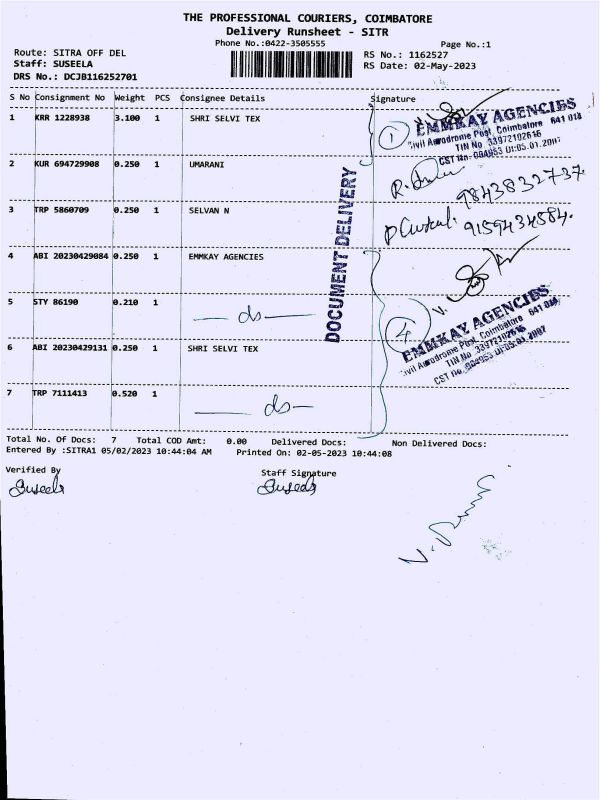 THE PROFESSIONAL COURIERS, COIMBATORE
Delivery Runsheet - SITR
Phone No.:0422-3505555
Page No.:1
Route: SITRA OFF DEL
RS No.: 1162527
Staff: SUSEELA
RS Date: 02-May-2023
DRS No.: DCJB116252701
S No Consignment No Weight PCS Consignee Details Signature
1 KRR 1228938 3.100 1 SHRI SELVI TEX
1
EMMKAY AGENCIES
Civil Aerodrome Post, Coimbatore 641 014
TIN No 33972102616
2 KUR 694729908 0.250 1 UMARANI
9843832737.
3 TRP 5860709 0.250 1 SELVAN N
9159434584.
4 ABI 20230429084 0.250 1 EMMKAY AGENCIES
5 STY 86190 0.210 1
ds
DOCUMENT DELIVERY
4
EMMKAY AGENCIES
Civil Aerodrome Post, Coimbatore 641 014
TIN No 33972102616
6 ABI 20230429131 0.250 1 SHRI SELVI TEX
7 TRP 7111413 0.520 1
ds
Total No. Of Docs: 7 Total COD Amt: 0.00 Delivered Docs: Non Delivered Docs:
Entered By :SITRA1 05/02/2023 10:44:04 AM Printed On: 02-05-2023 10:44:08
Verified By Staff Signature
Suseela Suseela